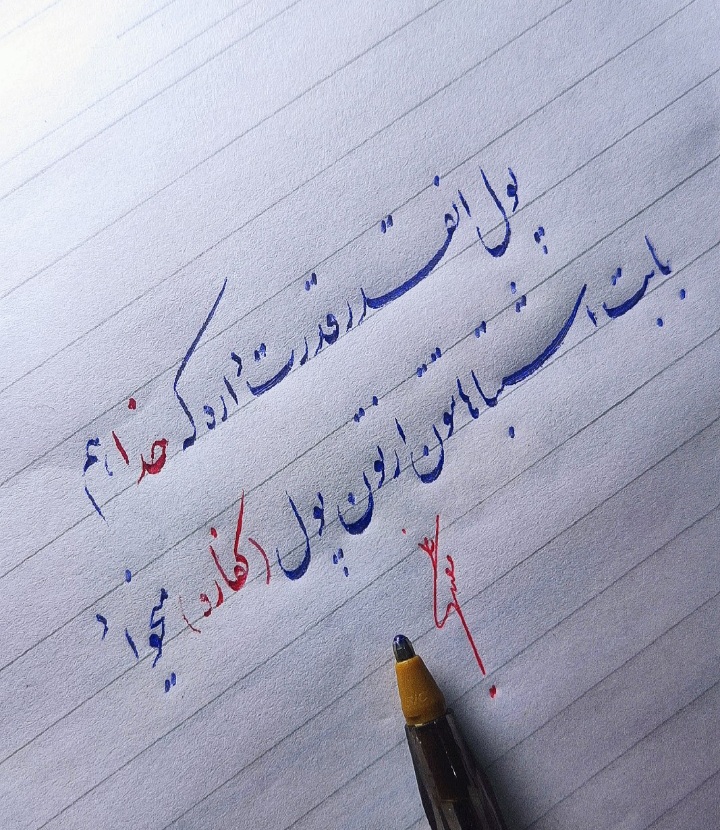 پول انقدر قدرت داره که خدا هم
بابت اشتباهاتون ازتون پول (کفاره) میخواد